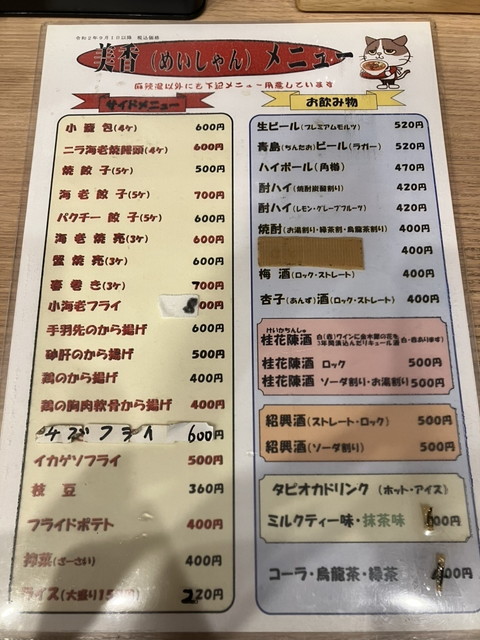 令和2年9月1日以降 税込価格
美香 (めいしゃん) メニュー
麻辣湯以外にも下記メニュー用意しています
サイドメニュー
小籠包(4ケ) 600円
ニラ海老焼饅頭(4ケ) 600円
焼餃子(5ケ) 500円
海老餃子(5ケ) 700円
パクチー餃子(5ケ) 600円
海老焼売(3ケ) 600円
蟹焼売(3ケ) 600円
春巻き(3ケ) 700円
小海老フライ 800円
手羽先のから揚げ 600円
砂肝のから揚げ 500円
鶏のから揚げ 400円
鶏の胸肉軟骨から揚げ 400円
チーズフライ 600円
イカゲソフライ 500円
枝豆 360円
フライドポテト 400円
搾菜(ざーさい) 400円
ライス(大盛り150円) 220円
お飲み物
生ビール(プレミアムモルツ) 520円
青島(ちんたお)ビール(ラガー) 520円
ハイボール(角樽) 470円
酎ハイ(焼酎炭酸割り) 420円
酎ハイ(レモン・グレープフルーツ) 420円
焼酎(お湯割り・緑茶割・烏龍茶割り) 400円
400円
梅酒(ロック・ストレート) 400円
杏子(あんず)酒(ロック・ストレート) 400円
けいかちんしゅ
桂花陳酒 白(赤)ワインに金木犀の花を 白・赤あります)
3年間漬込んだリキュール酒
桂花陳酒 ロック 500円
桂花陳酒 ソーダ割り・お湯割り 500円
紹興酒(ストレート・ロック) 500円
紹興酒(ソーダ割り) 500円
タピオカドリンク (ホット・アイス)
ミルクティー味・抹茶味 00円
コーラ・烏龍茶・緑茶 00円